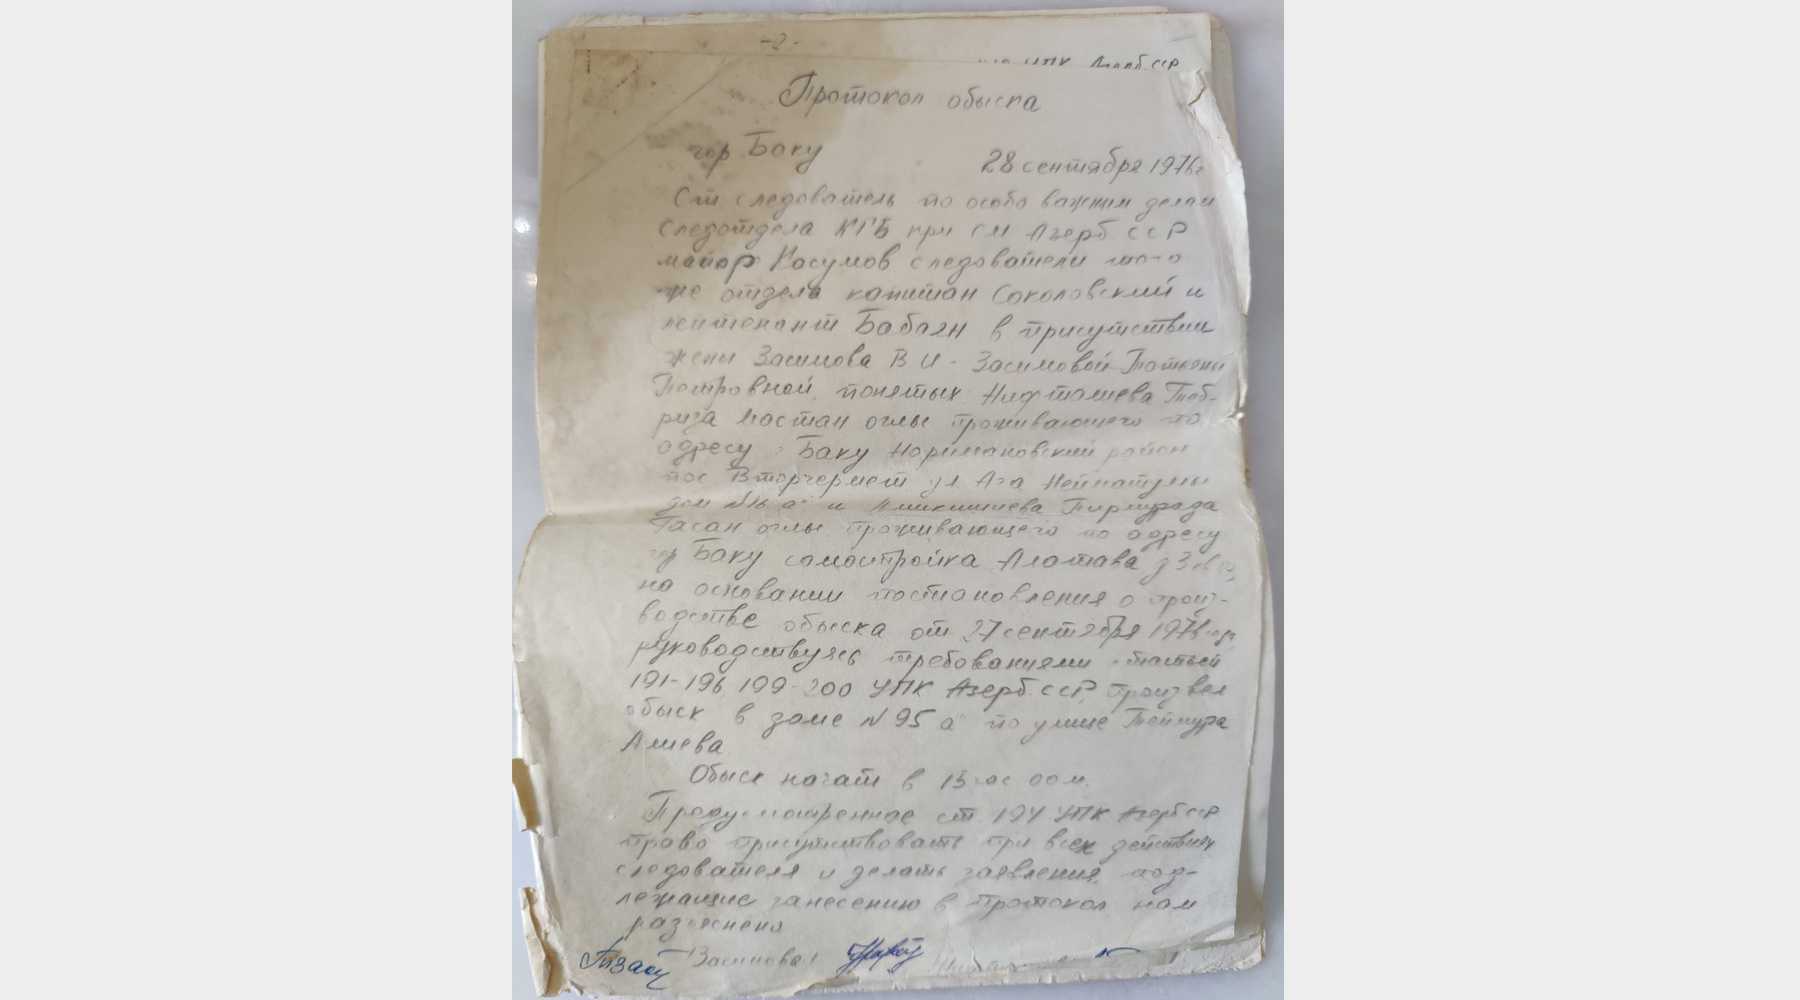 -2-
УПК Азерб ССР
Протокол обыска
гор Баку
28 сентября 1976г
Ст следователь по особо важным делам
Следотдела КГБ при СМ Азерб ССР
майор Касумов следователи того
же отдела капитан Соколовский и
лейтенант Бабаян в присутствии
жены Засимова В И - Засимовой Татьяны
Петровной понятых Нифталиева Тоб-
риза Мастан оглы проживающего по
адресу Баку Наримановский район
пос Вторчермет ул Ага Нейматуллы
дом №16 а и Пирмурада
Гасан оглы проживающего по адресу
гор Баку самостройка Алатава
на основании постановления о произ-
водстве обыска от 27 сентября 1976 года
руководствуясь требованиями статьей
191-196 199-200 УПК Азерб. ССР, произвел
обыск в доме №95 а по улице Теймура
Алиева
Обыск начат в 15 час 00 м.
Предусмотренное ст. 194 УПК Азерб ССР
право присутствовать при всех действиях
следователя и делать заявления, под-
лежащие занесению в протокол нам
разъяснено
Засимова